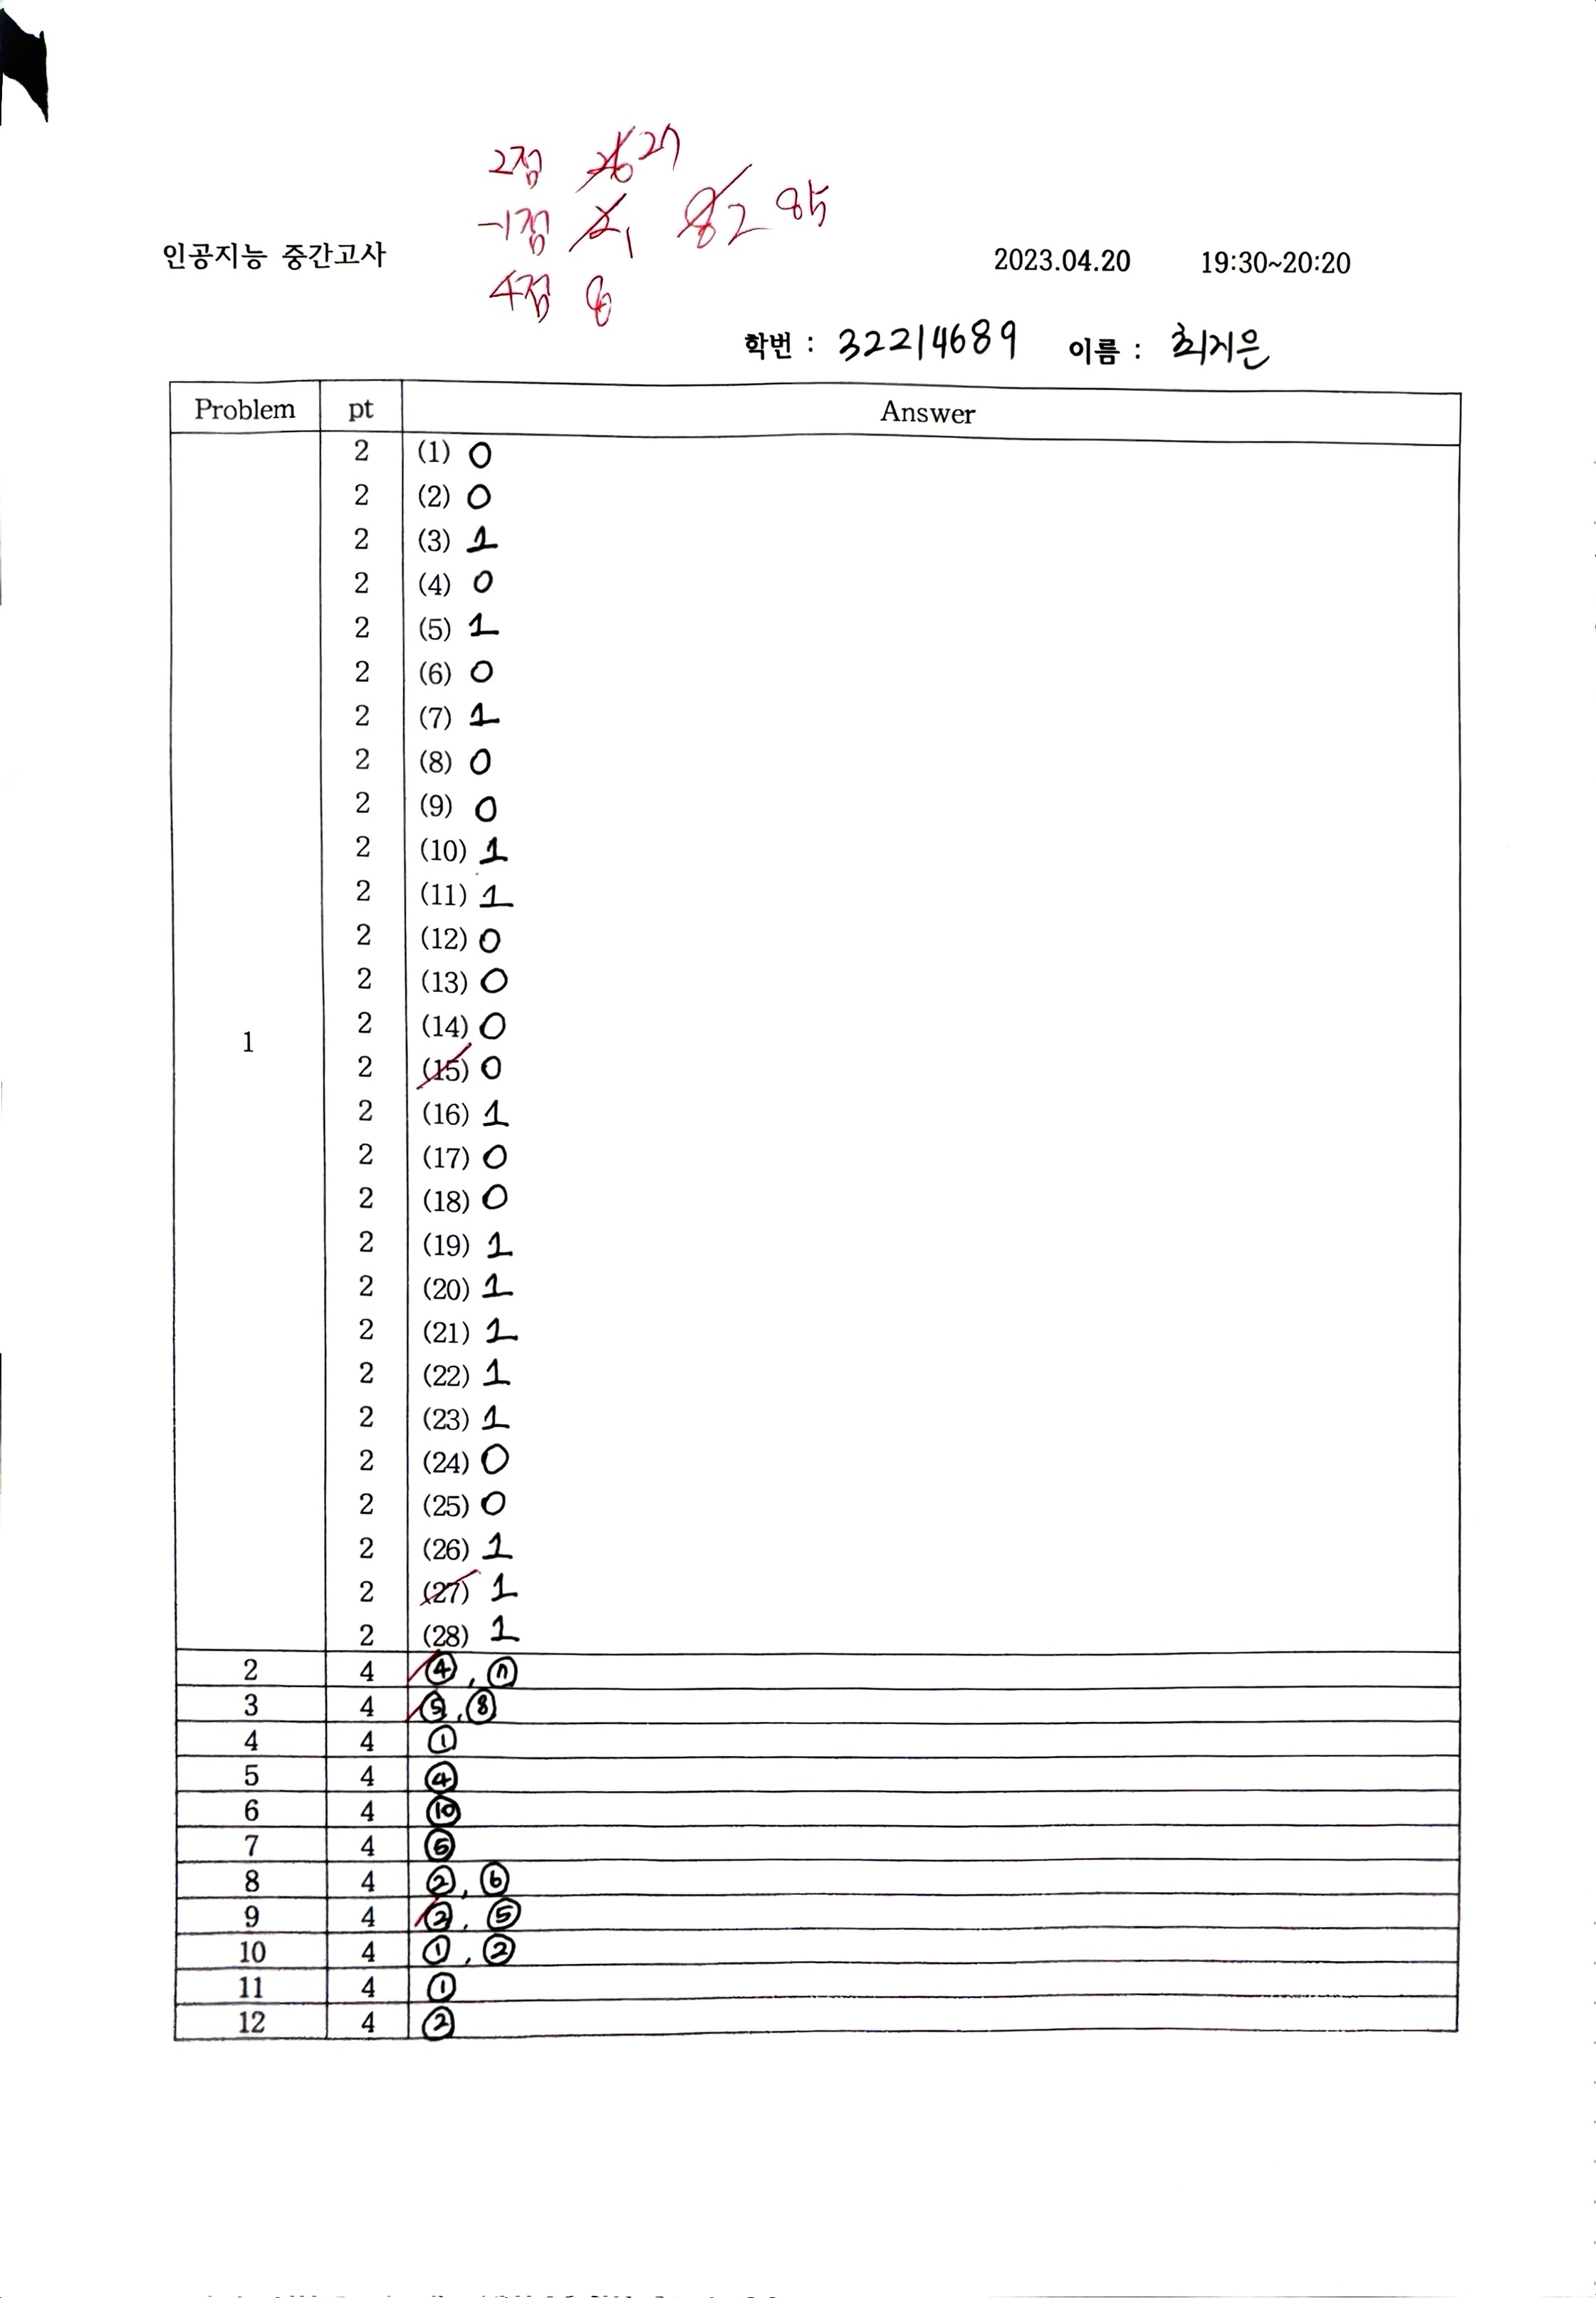 2점 26 27
-1점 2 1 82 85
4점 8
인공지능 중간고사 2023.04.20 19:30~20:20
학번 : 32214689 이름 : 최지은
Problem pt Answer
2 (1) 0
2 (2) 0
2 (3) 1
2 (4) 0
2 (5) 1
2 (6) 0
2 (7) 1
2 (8) 0
2 (9) 0
2 (10) 1
2 (11) 1
2 (12) 0
2 (13) 0
2 (14) 0
1
2 (15) 0
2 (16) 1
2 (17) 0
2 (18) 0
2 (19) 1
2 (20) 1
2 (21) 1
2 (22) 1
2 (23) 1
2 (24) 0
2 (25) 0
2 (26) 1
2 (27) 1
2 (28) 1
2 4 ④, ⑪
3 4 ⑤, ⑧
4 4 ①
5 4 ④
6 4 ⑩
7 4 ⑤
8 4 ②, ⑥
9 4 ②, ⑤
10 4 ①, ②
11 4 ①
12 4 ②